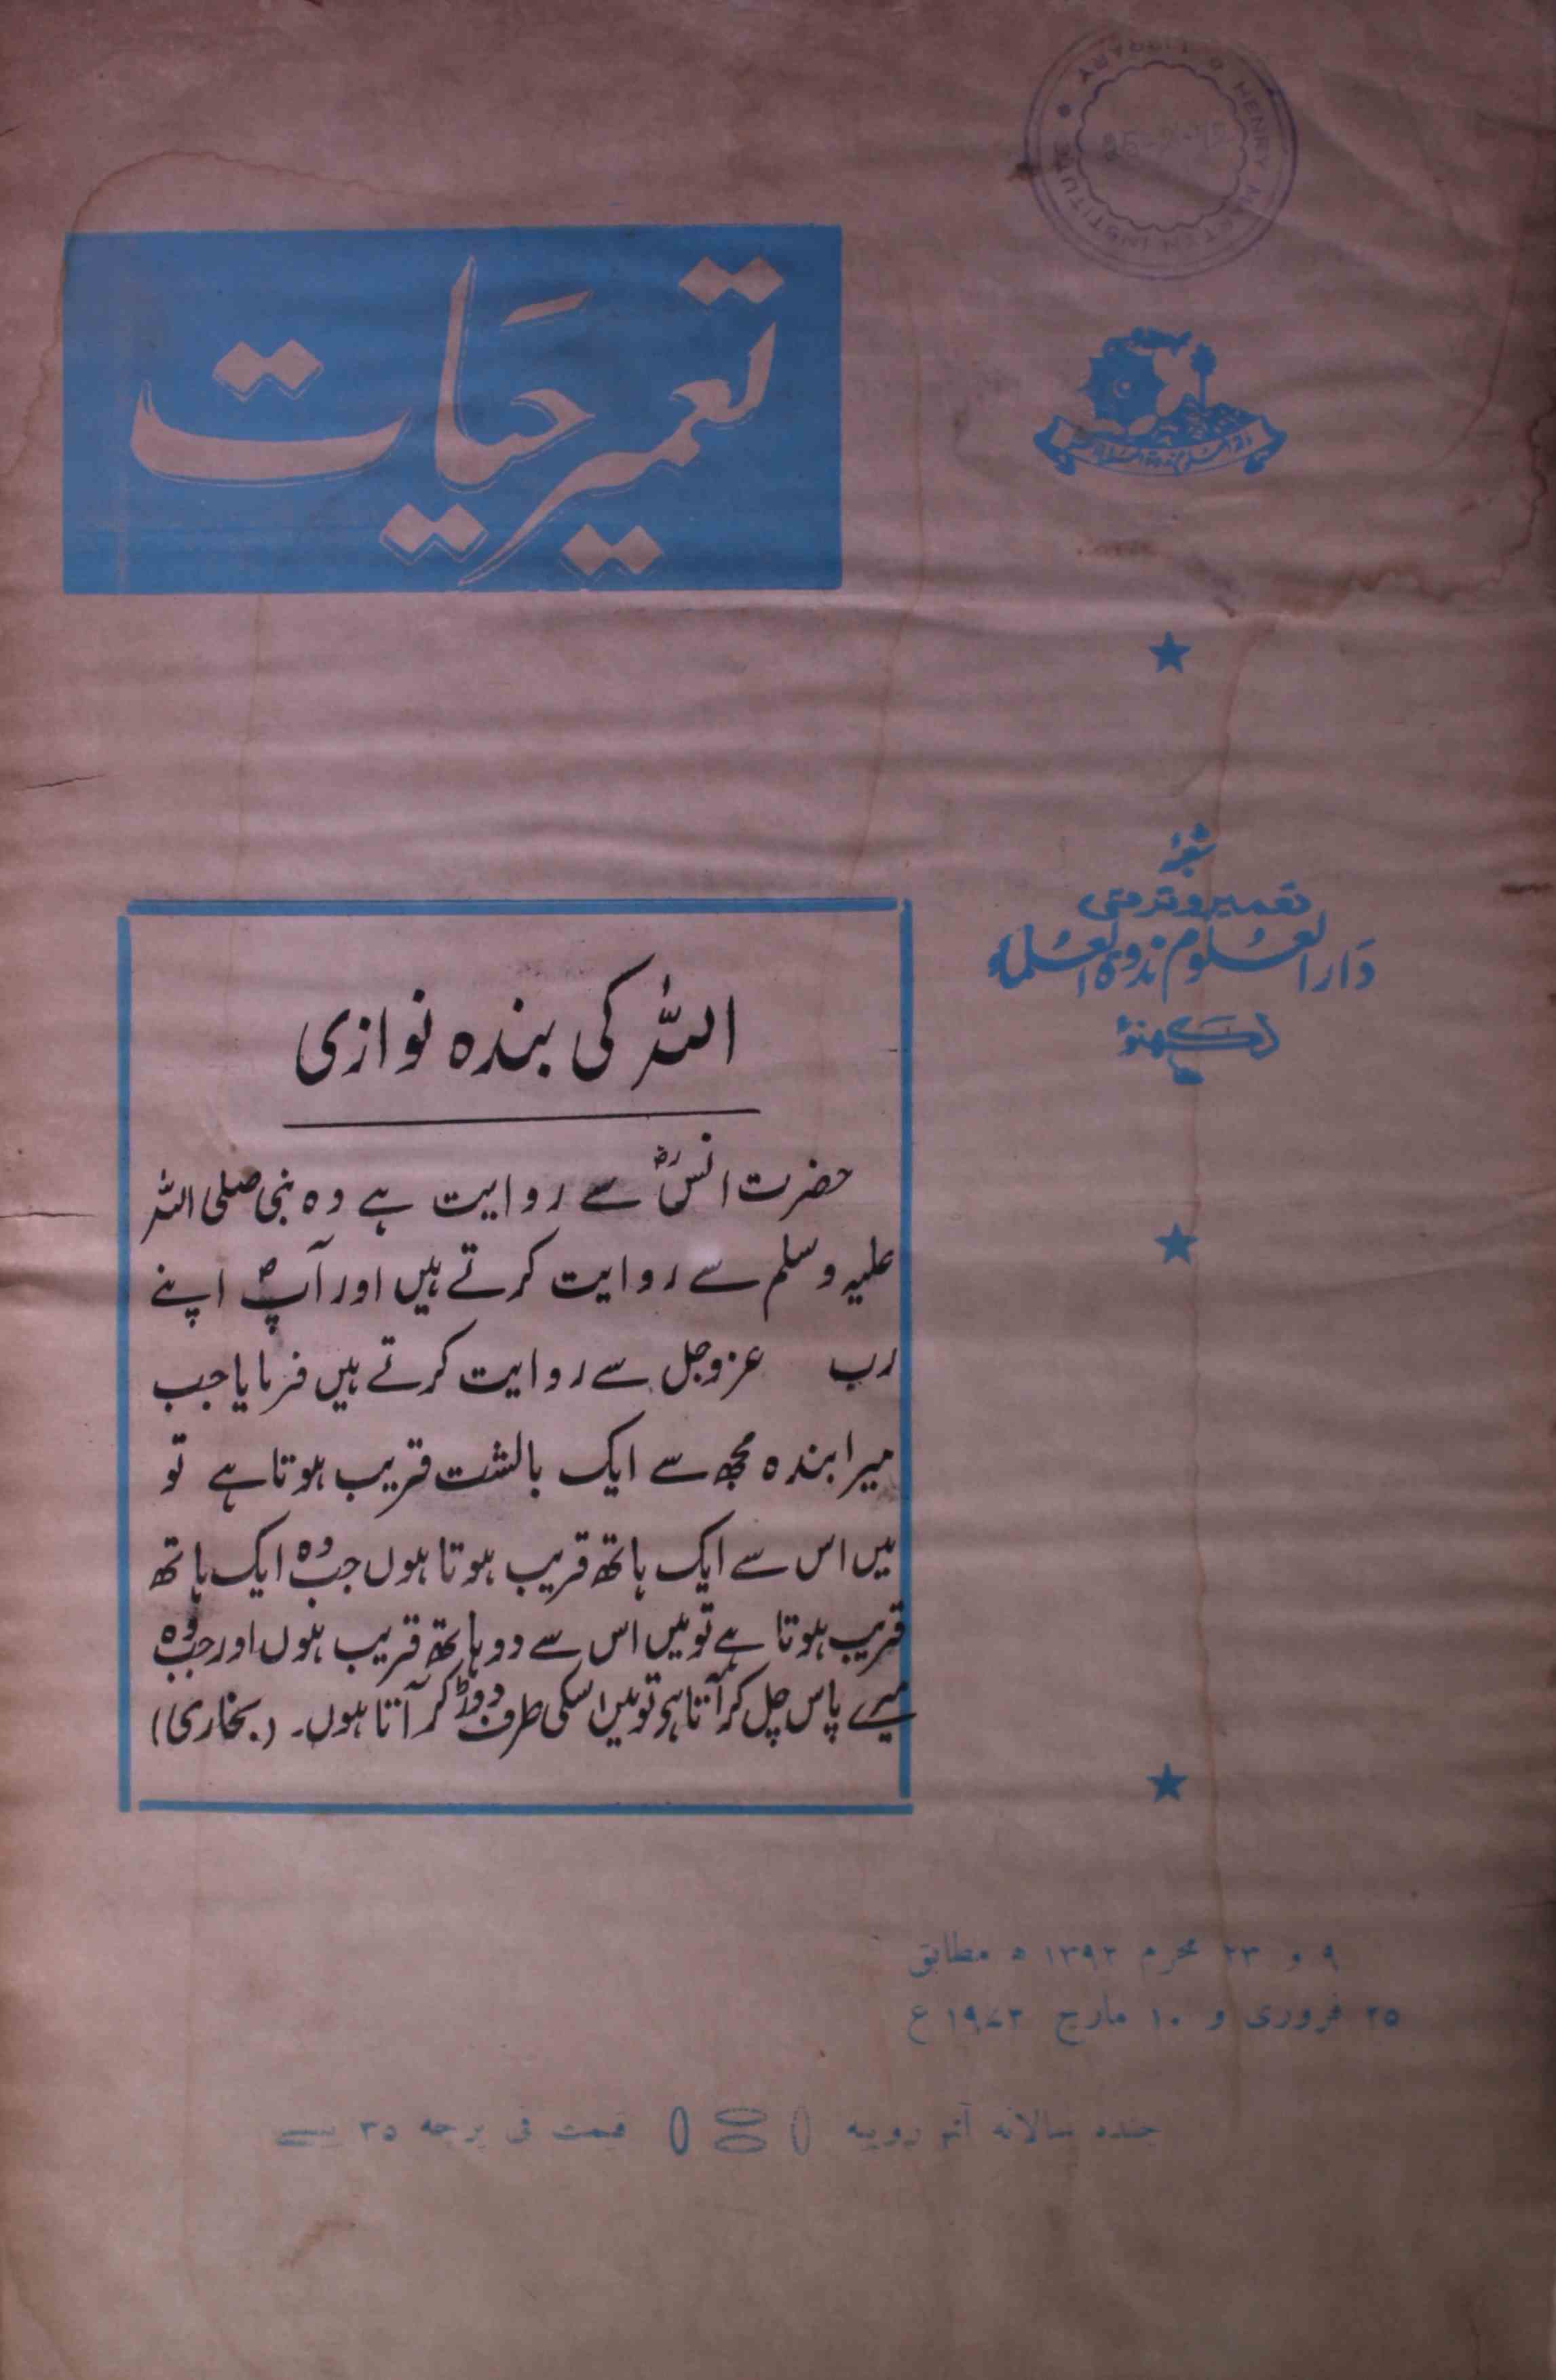 HENRY MARTYN INSTITUTE
LIBRARY
تعمیر حیات
شعبۂ
تعمیر و ترقی
دارالعلوم ندوة العلماء
لکھنؤ
اللہ کی بندہ نوازی
حضرت انسؓ سے روایت ہے وہ نبی صلی اللہ
علیہ وسلم سے روایت کرتے ہیں اور آپؐ اپنے
رب عزوجل سے روایت کرتے ہیں فرمایا جب
میرا بندہ مجھ سے ایک بالشت قریب ہوتا ہے تو
میں اس سے ایک ہاتھ قریب ہوتا ہوں جب وہ ایک ہاتھ
قریب ہوتا ہے تو میں اس سے دو ہاتھ قریب ہوں اور جب وہ
میرے پاس چل کر آتا ہے تو میں اسکی طرف دوڑ کر آتا ہوں۔ (بخاری)
۹ و ۲۳ محرم ۱۳۹۳ ہ مطابق
۲۵ فروری و ۱۰ مارچ ۱۹۷۳ ع
چندہ سالانہ آٹھ روپیہ قیمت فی پرچہ ۳۵ پیسے